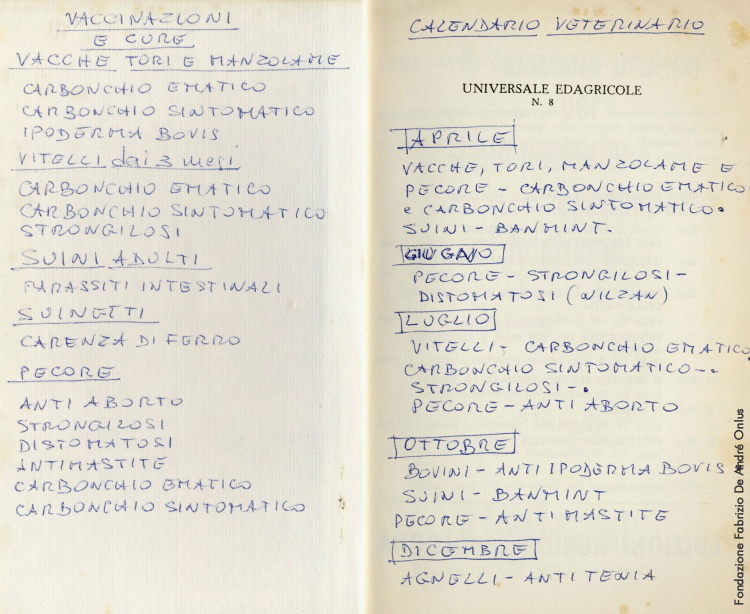 VACCINAZIONI
E CURE
VACCHE TORI E MANZOLAME
CARBONCHIO EMATICO
CARBONCHIO SINTOMATICO
IPODERMA BOVIS
VITELLI dai 3 mesi
CARBONCHIO EMATICO
CARBONCHIO SINTOMATICO
STRONGILOSI
SUINI ADULTI
PARASSITI INTESTINALI
SUINETTI
CARENZA DI FERRO
PECORE
ANTI ABORTO
STRONGILOSI
DISTOMATOSI
ANTIMASTITE
CARBONCHIO EMATICO
CARBONCHIO SINTOMATICO
CALENDARIO VETERINARIO
UNIVERSALE EDAGRICOLE
N. 8
APRILE
VACCHE, TORI, MANZOLAME E
PECORE - CARBONCHIO EMATICO
e CARBONCHIO SINTOMATICO.
SUINI - BANMINT.
GIUGNO
PECORE - STRONGILOSI -
DISTOMATOSI (NILZAN)
LUGLIO
VITELLI - CARBONCHIO EMATICO
CARBONCHIO SINTOMATICO - .
STRONGILOSI - .
PECORE - ANTI ABORTO
OTTOBRE
BOVINI - ANTI IPODERMA BOVIS
SUINI - BANMINT
PECORE - ANTI MASTITE
DICEMBRE
AGNELLI - ANTI TENIA
Fondazione Fabrizio De André Onlus